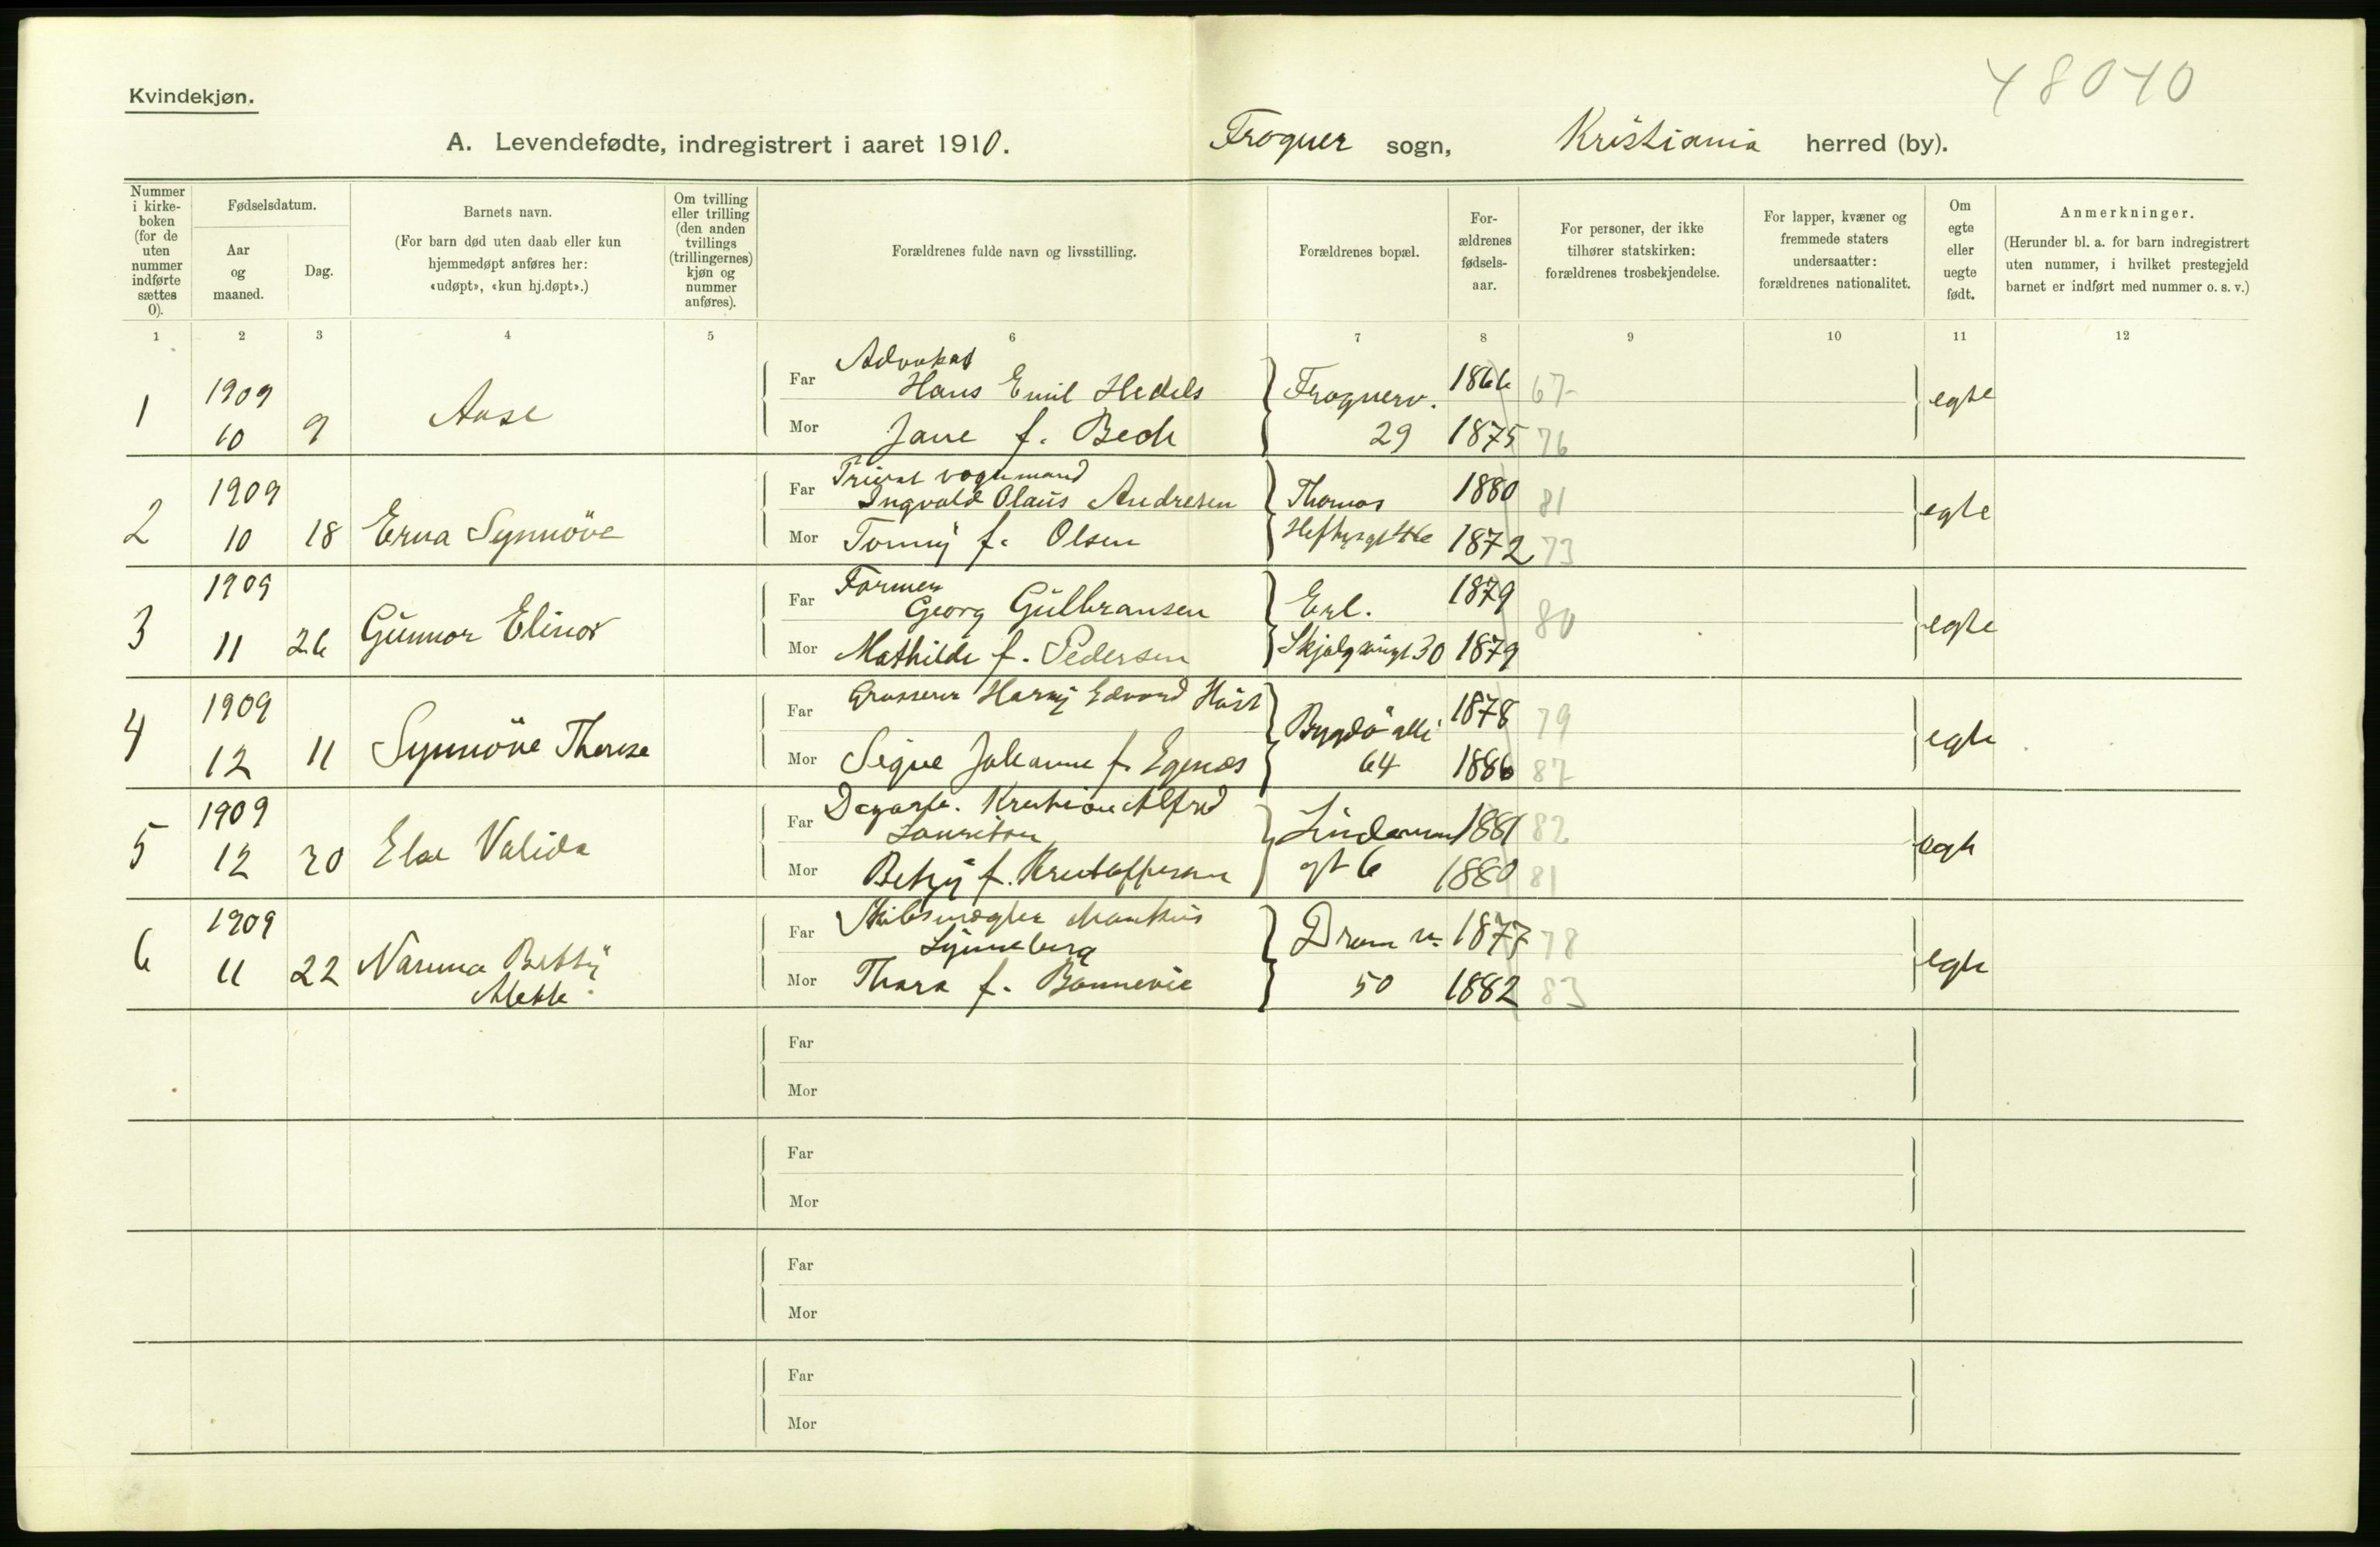 48040
Kvindekjøn.
A. Levendefødte, indregistrert i aaret 1910. Frogner sogn, Kristiania herred (by).
Nummer i kirke- boken (for de uten nummer indførte sættes 0).
Fødselsdatum.
Aar og maaned.
Dag.
Barnets navn.
(For barn død uten daab eller kun hjemmedøpt anføres her: «udøpt», «kun hj.døpt».)
Om tvilling eller trilling (den anden tvillings (trillingernes) kjøn og nummer anføres).
Forældrenes fulde navn og livsstilling.
Forældrenes bopæl.
For- ældrenes fødsels- aar.
For personer, der ikke tilhører statskirken: forældrenes trosbekjendelse.
For lapper, kvæner og fremmede staters undersaatter: forældrenes nationalitet.
Om egte eller uegte født.
Anmerkninger.
(Herunder bl. a. for barn indregistrert uten nummer, i hvilket prestegjeld barnet er indført med nummer o. s. v.)
1 2 3 4 5 6 7 8 9 10 11 12
Advokat
1 1909 Aase Far Hans Emil Hedels Frognerv. 1866 67 egte
10 9 Mor f. Bech 29 1875 76
Privat vognmand
2 1909 Far Ingvald Olaus Andresen Thomas 1880 81 egte
10 18 Erna Synnöve Mor f. Olsen Heftyesgt 1872 73
Former
3 1909 Gunnor Elinor Far Georg Gulbransen Erl. 1879 80 egte
11 26 Mor Mathilde f. Pedersen 30 1879
4 1909 Synnöve Therese Far Grosserer Harry Edvard Bygdö alle 1878 79 egte
12 11 Mor Signe Johanne f. Egenæs 64 1886 87
5 1909 Else Valida Far Kristian Alfred 1881 82 egte
Lauritsen
12 20 Mor Betzy f. Kristoffersen gt 6 1880 81
6 1909 Far Skibsmægler Dram v. 1877 78 egte
Lynneberg
11 22 Betty Mor Thora f. Bonnevie 50 1882 83
Far
Mor
Far
Mor
Far
Mor
Far
Mor